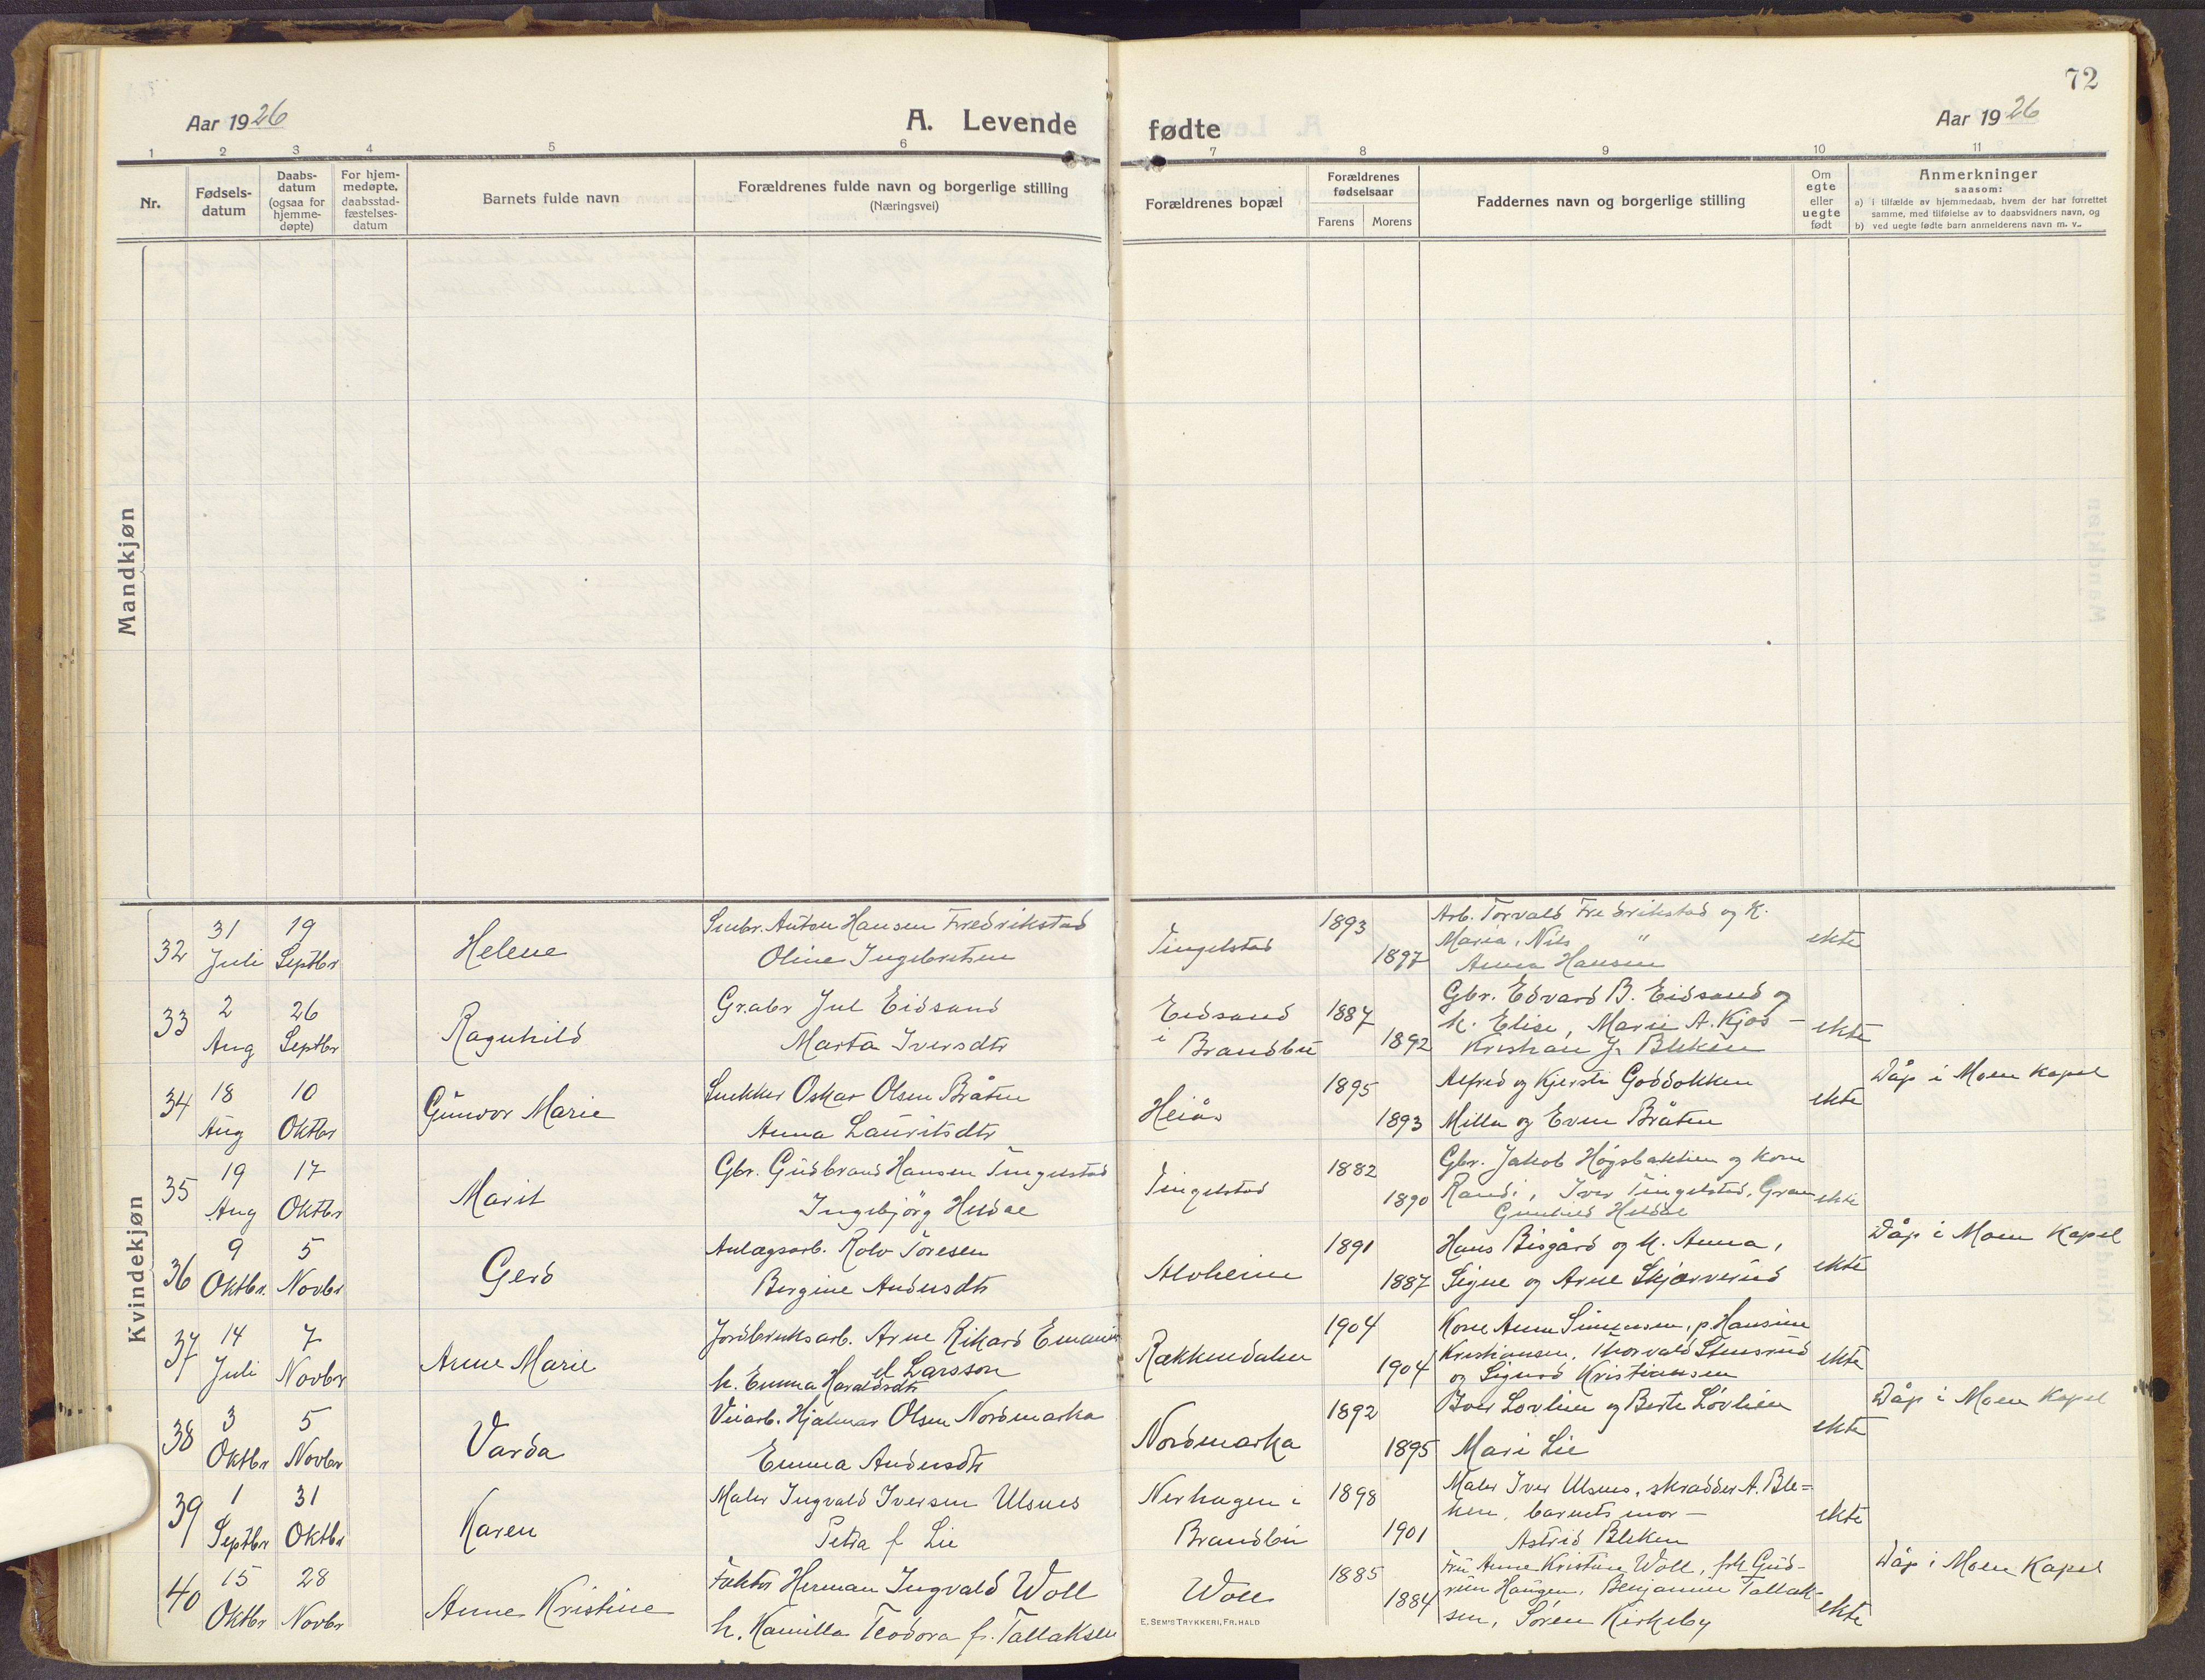 72
Aar 1926
A. Levende
fødte
Aar 1926
1 2 3 4 5 6 7 8 9 10 11
Nr.
Fødsels-
datum
Daabs-
datum
(ogsaa for
hjemme-
døpte)
For hjem-
medøpte,
daabsstad-
fæstelses-
datum
Barnets fulde navn
Forældrenes fulde navn og borgerlige stilling
(Næringsvei)
Forældrenes bopæl
Forældrenes
fødselsaar
Farens Morens
Faddernes navn og borgerlige stilling
Om
egte
eller
uegte
født
Anmerkninger
saasom:
a) i tilfælde av hjemmedaab, hvem der har forrettet
samme, med tilføielse av to daabsvidners navn, og
b) ved uegte fødte barn anmelderens navn m. v.
Mandkjøn
Kvindekjøn
32
31
Juli
19
Septbr
Helene
Smbr. Anton Hansen Fredrikstad
Oline Ingebretsen
Tingelstad
1893
1897
Arb. Torvald Fredrikstad og K.
Maria, Nils "
Anna Hansen
ekte
33
2
Aug
26
Septbr
Ragnhild
Grabr Jul Eidsand
Marta Iversdtr
Eidsand
i Brandbu
1887
1892
Gbr. Edvard B. Eidsand og
k. Elise, Marie A. Kjos -
Kristian J. Bleken
ekte
34
18
Aug
10
Oktbr
Gunvor Marie
Snekker Oskar Olsen Bråten
Anna Lauritsdtr
Heiås
1895
1893
Alfred og Kjersti Goddokken
Milla og Even Bråten
ekte
Dåp i Moen Kapel
35
19
Aug
17
Oktbr
Marit
Gbr. Gudbrand Hansen Tingelstad
Ingebjørg Heldal
Tingelstad
1882
1890
Gbr. Jakob Høgsbakken og kone
Randi, Iver Tingelstad, Gran
Gunhild Heldal
ekte
36
9
Oktbr.
5
Novbr
Gerd
Anlægsarb. Rolv Toresen
Bergine Andersdtr
Alvheim
1891
1887
Hans Bisgård og k. Anna,
Signe og Arne Skjærverud
ekte
Dåp i Moen Kapel
37
14
Juli
7
Novbr
Anne Marie
Jordbruksarb. Arne Rikard Emanu
el Larsson
h. Emma Haraldsdtr
Rækkendalen
1904
1904
Kone Anna Simensen, p. Hansine
Kristiansen, Thorvald Stensrud
og Sigurd Kristiansen
ekte
38
3
Oktbr
5
Novbr
Varda
Veiarb. Hjalmar Olsen Nordmarka
Emma Andersdtr
Nordmarka
1892
1895
Iver Lovlien og Berte Løvlien
Mari Lie
ekte
Dåp i Moen Kapel
39
1
Septbr
31
Oktbr
Karen
Maler Ingvald Iversen Ulsnes
Petra f Lie
Nerhagen i
Brandbu
1898
1901
Maler Iver Ulsnes, skrædder A. Ble=
ken, barnets mor -
Astrid Bleken
ekte
40
15
Oktbr
28
Novbr
Anne Kristine
Faktor Herman Ingvald Woll
h. Kamilla Teodora f. Tallaksen
Woll
1885
1884
Fru Anne Kristine Woll, frk Gud-
run Haugen, Benjamin Tallak-
sen, Søren Kirkeby
ekte
Dåp i Moen Kapel
E. SEM'S TRYKKERI, FR.HALD